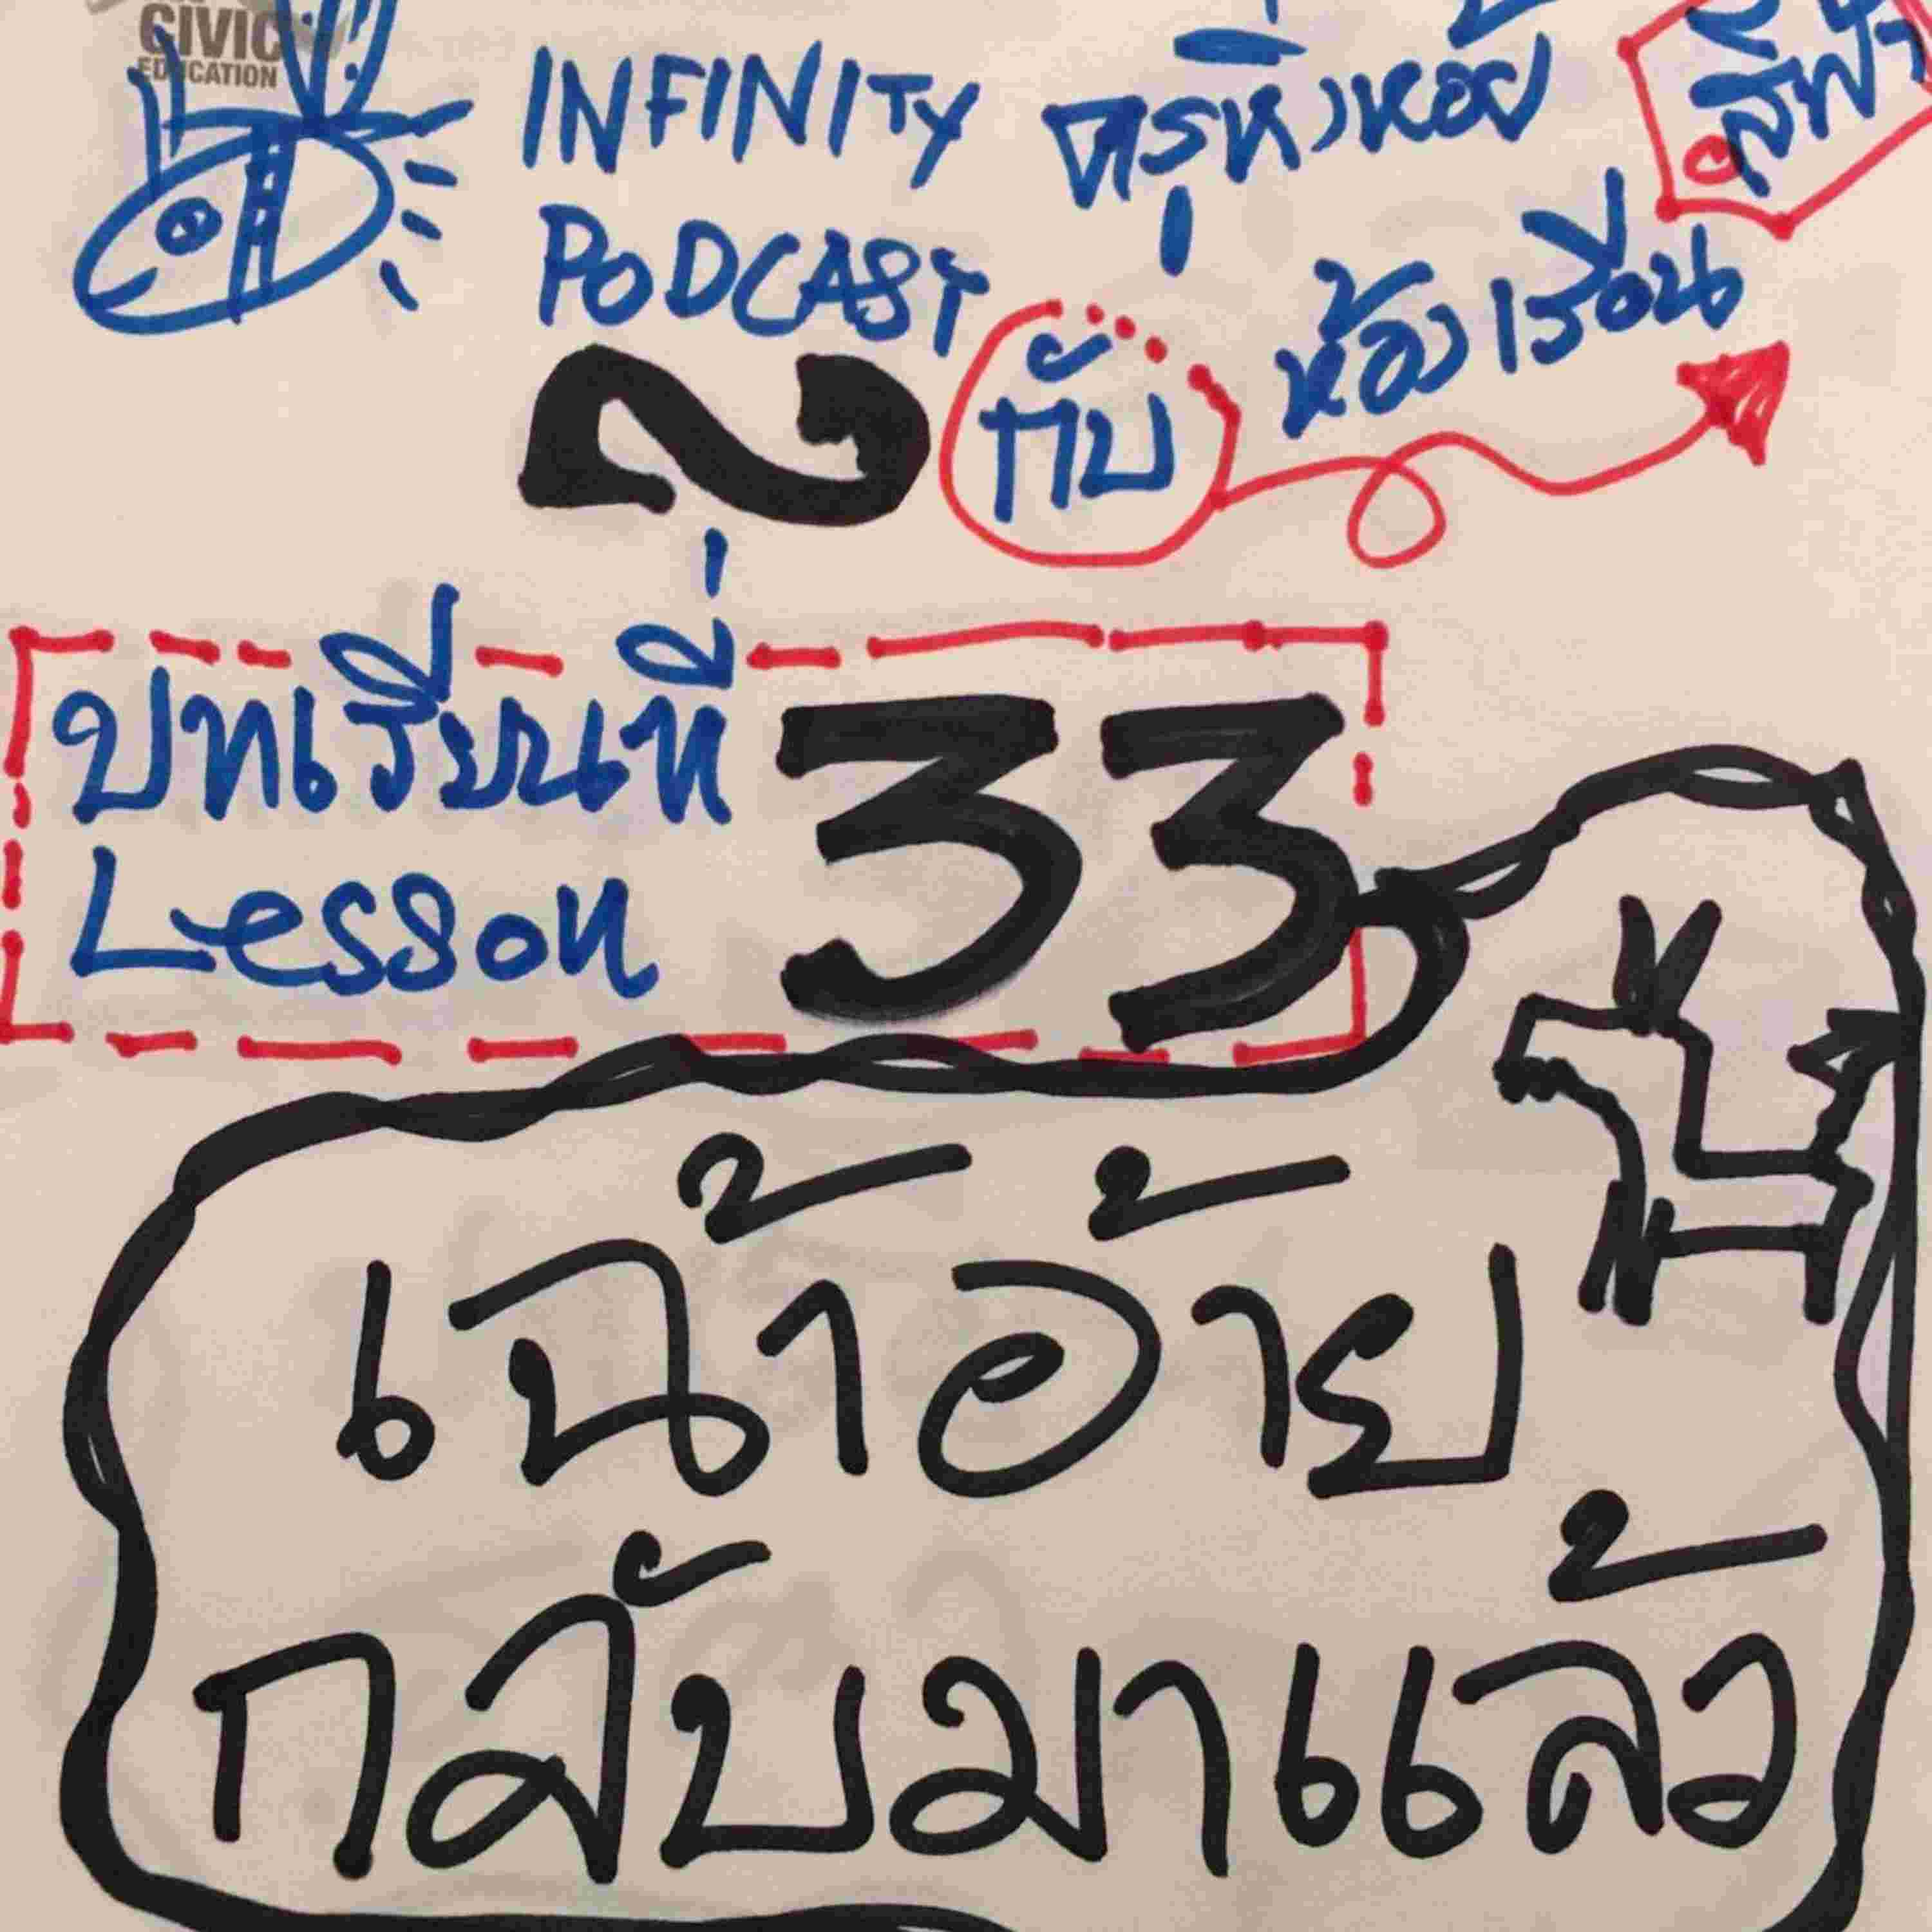 CIVIC
EDUCATION
INFINITY
PODCAST
ครูหิ่งห้อย
สีฟ้า
กับ
ห้องเรือน
บทเรียนที่ 33
Lesson
เฉ้าอ้าย
กลับมาแล้ว